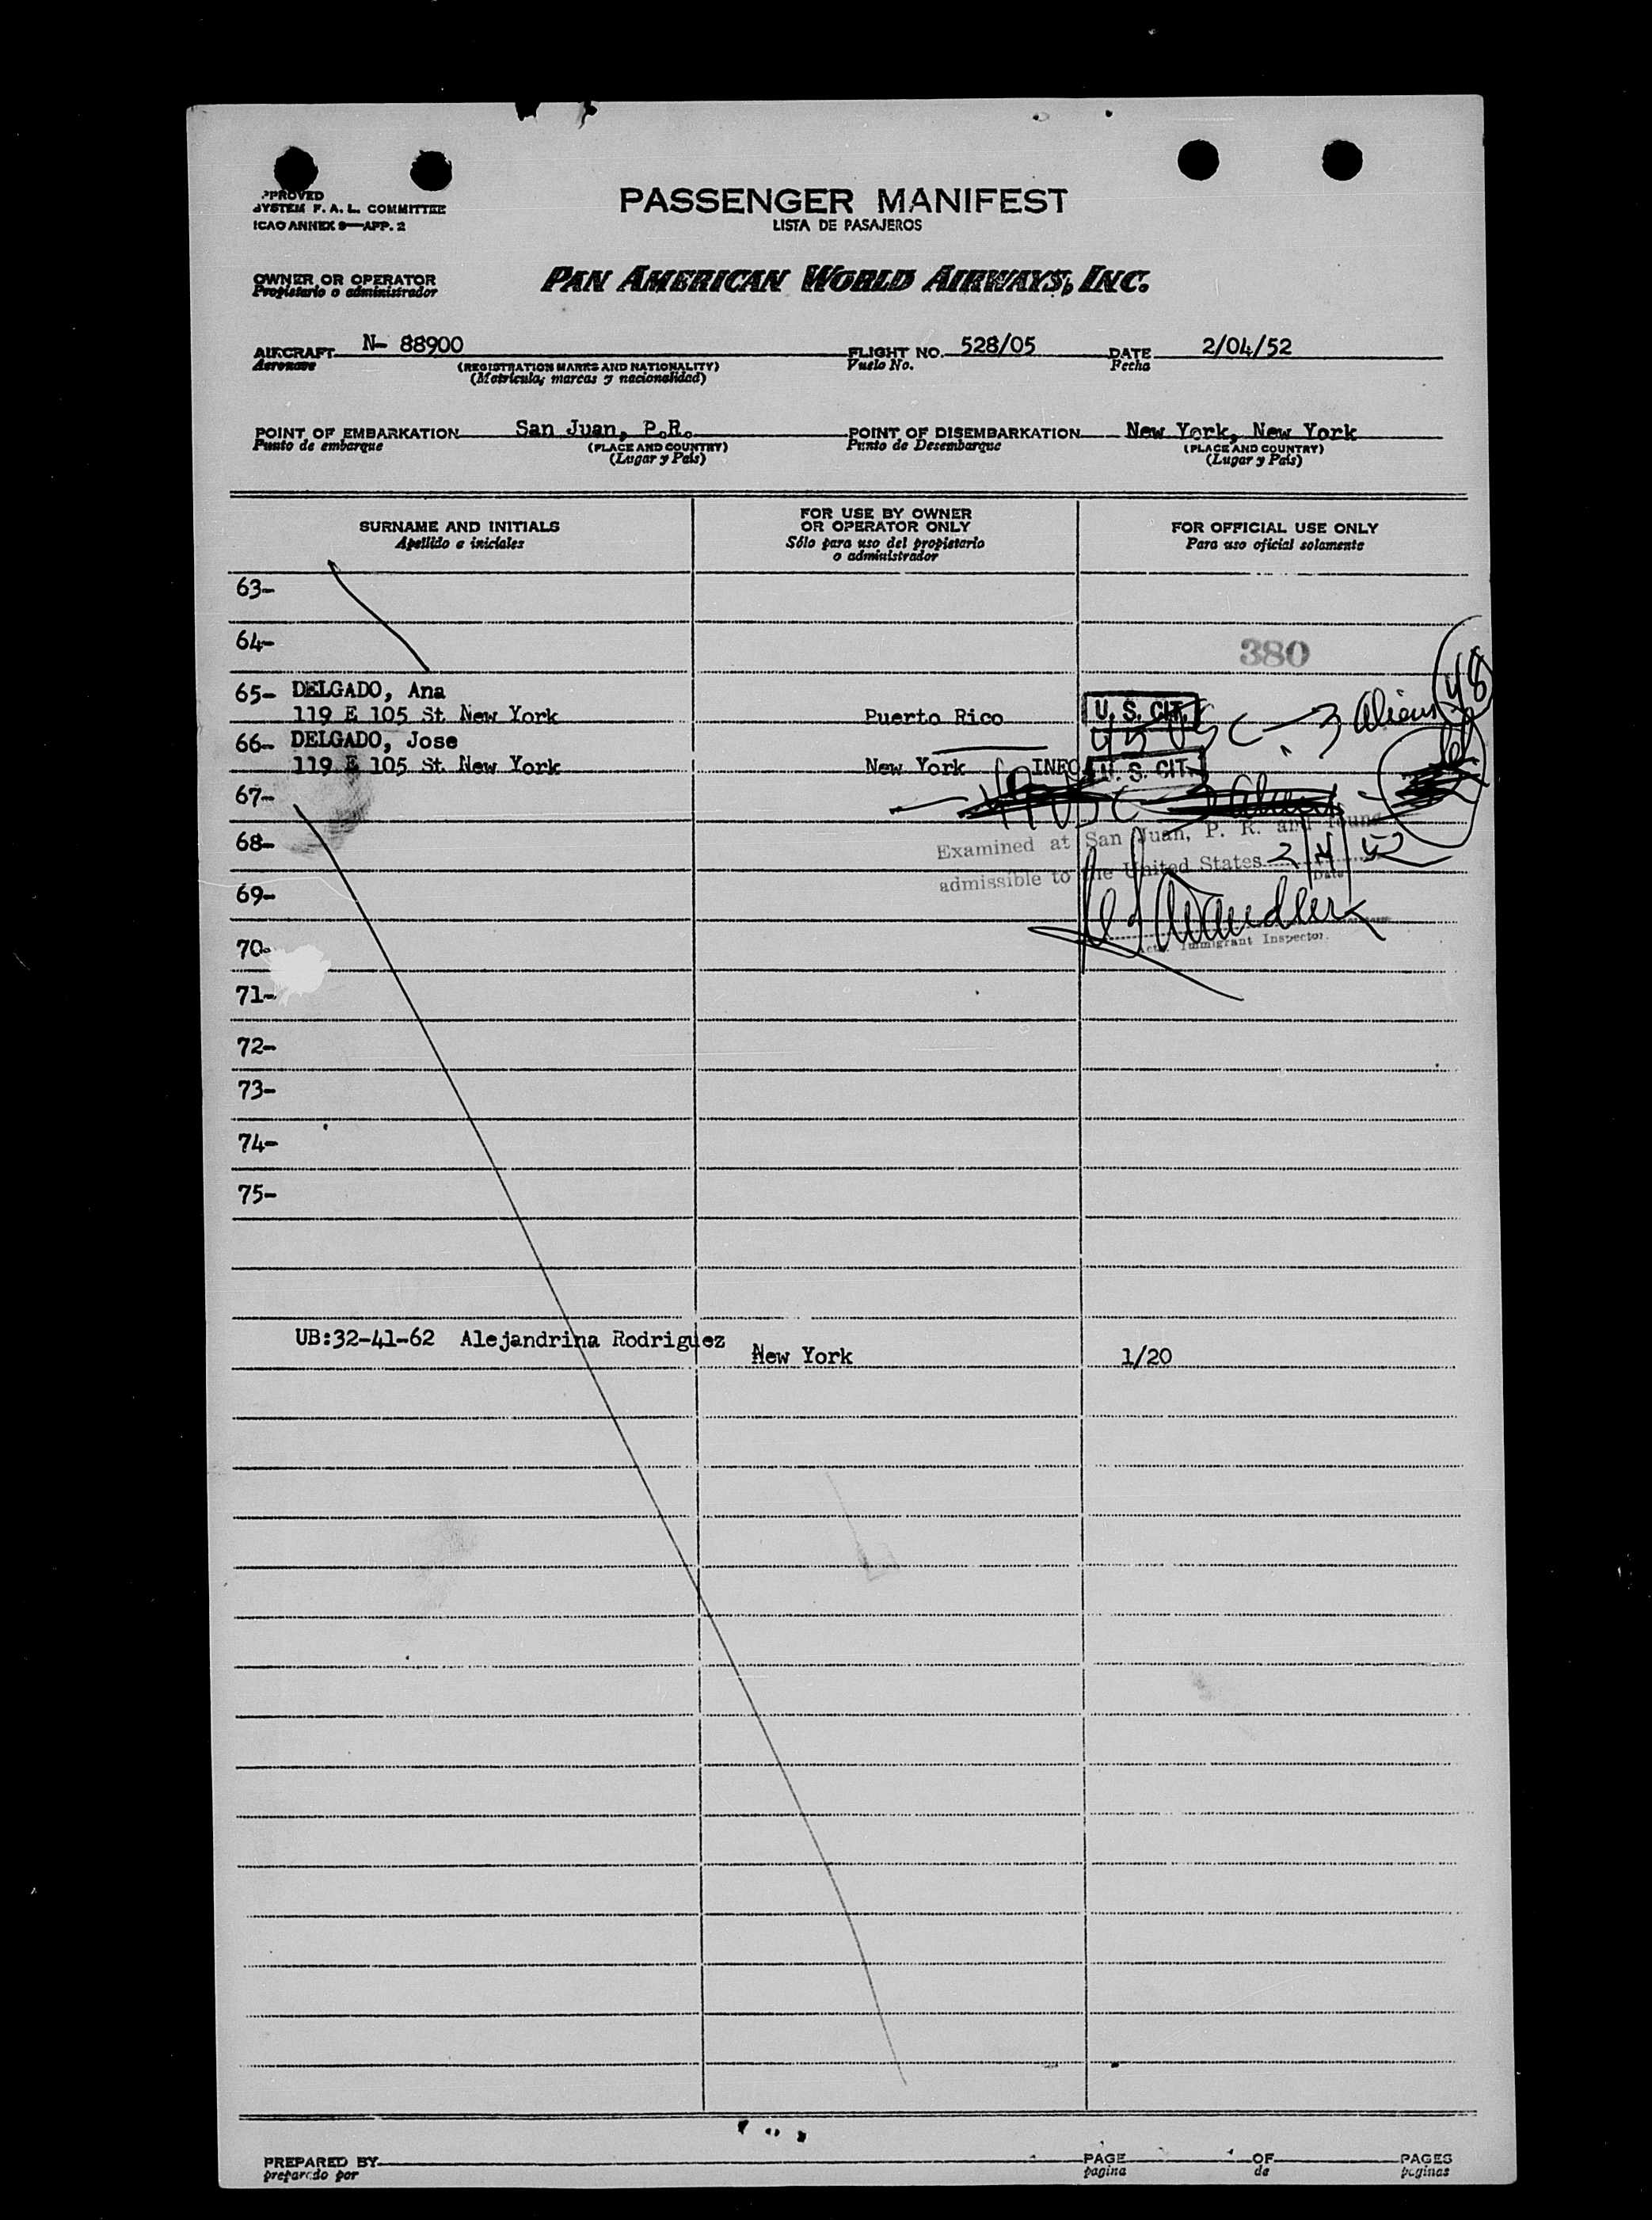 PPROVED
SYSTEM F. A. L. COMMITTEE
ICAO ANNEX 9—APP. 2
PASSENGER MANIFEST
LISTA DE PASAJEROS
OWNER OR OPERATOR
Propietario o administrador
PAN AMERICAN WORLD AIRWAYS, INC.
AIRCRAFT N- 88900 FLIGHT NO. 528/05 DATE 2/04/52
Aeronave (REGISTRATION MARKS AND NATIONALITY) Vuelo No. Fecha
(Matrícula, marcas y nacionalidad)
POINT OF EMBARKATION San Juan, P.R. POINT OF DISEMBARKATION New York, New York
Punto de embarque (PLACE AND COUNTRY) Punto de Desembarque (PLACE AND COUNTRY)
(Lugar y País) (Lugar y País)
SURNAME AND INITIALS
Apellido e iniciales
FOR USE BY OWNER
OR OPERATOR ONLY
Sólo para uso del propietario
o administrador
FOR OFFICIAL USE ONLY
Para uso oficial solamente
63-
64-
380
65- DELGADO, Ana
119 E 105 St New York Puerto Rico U. S. CIT.
48
45 USC 3 Aliens
66- DELGADO, Jose
119 E 105 St New York New York INF U. S. CIT.
67-
68-
Examined at San Juan, P. R. and found
admissible to the United States 2/4/52
Date
69-
Immigrant Inspector.
70-
71-
72-
73-
74-
75-
UB:32-41-62 Alejandrina Rodriguez New York 1/20
PREPARED BY PAGE OF PAGES
preparado por pagina de paginas